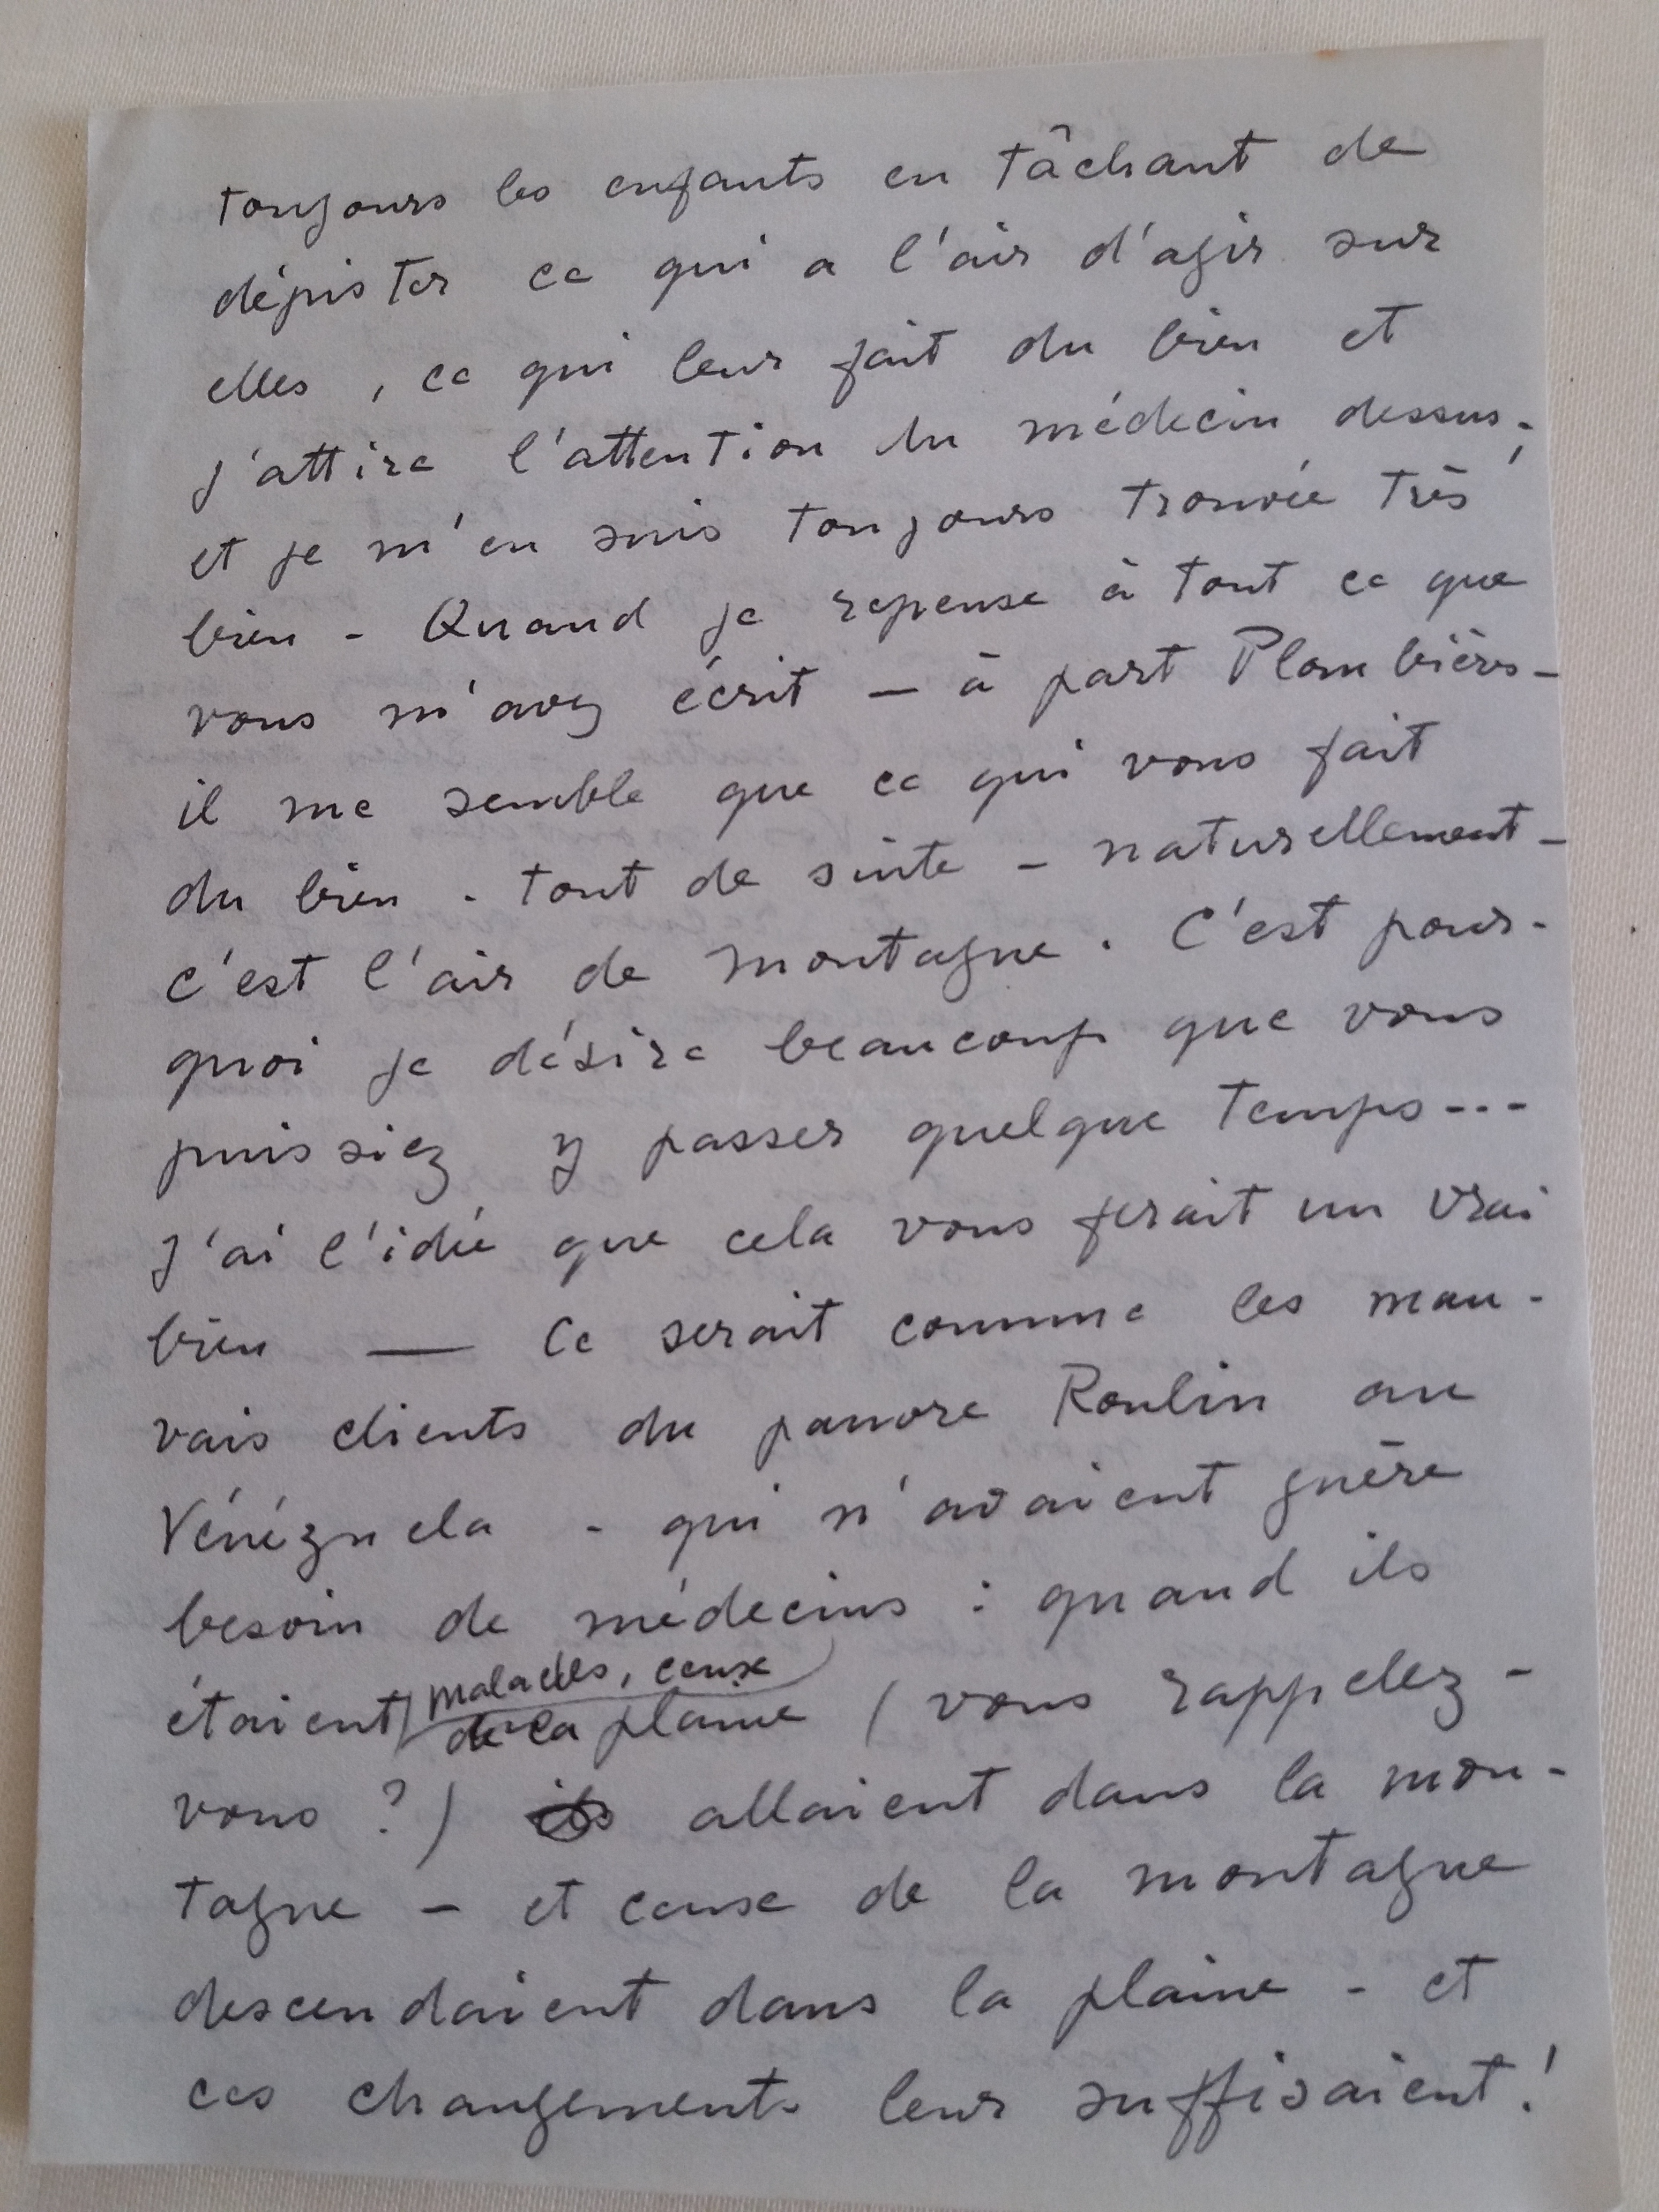 toujours les enfants en tâchant de
dépister ce qui a l'air d'agir sur
elles, ce qui leur fait du bien et
j'attire l'attention du médecin dessus;
et je m'en suis toujours trouvée très
bien - Quand je repense à tout ce que
vous m'avez écrit — à part Plombières -
il me semble que ce qui vous fait
du bien . tout de suite - naturellement -
c'est l'air de montagne . C'est pour-
quoi je désire beaucoup que vous
puissiez y passer quelque temps ---
J'ai l'idée que cela vous ferait un vrai
bien — Ce serait comme les mau-
vais clients du pauvre Roulin au
Vénézuela - qui n'avaient guère
besoin de médecins : quand ils
étaient malades, ceux
de la plaine (vous rappelez-
vous ?) ils allaient dans la mon-
tagne - et ceux de la montagne
descendaient dans la plaine - et
ces changements leur suffisaient !